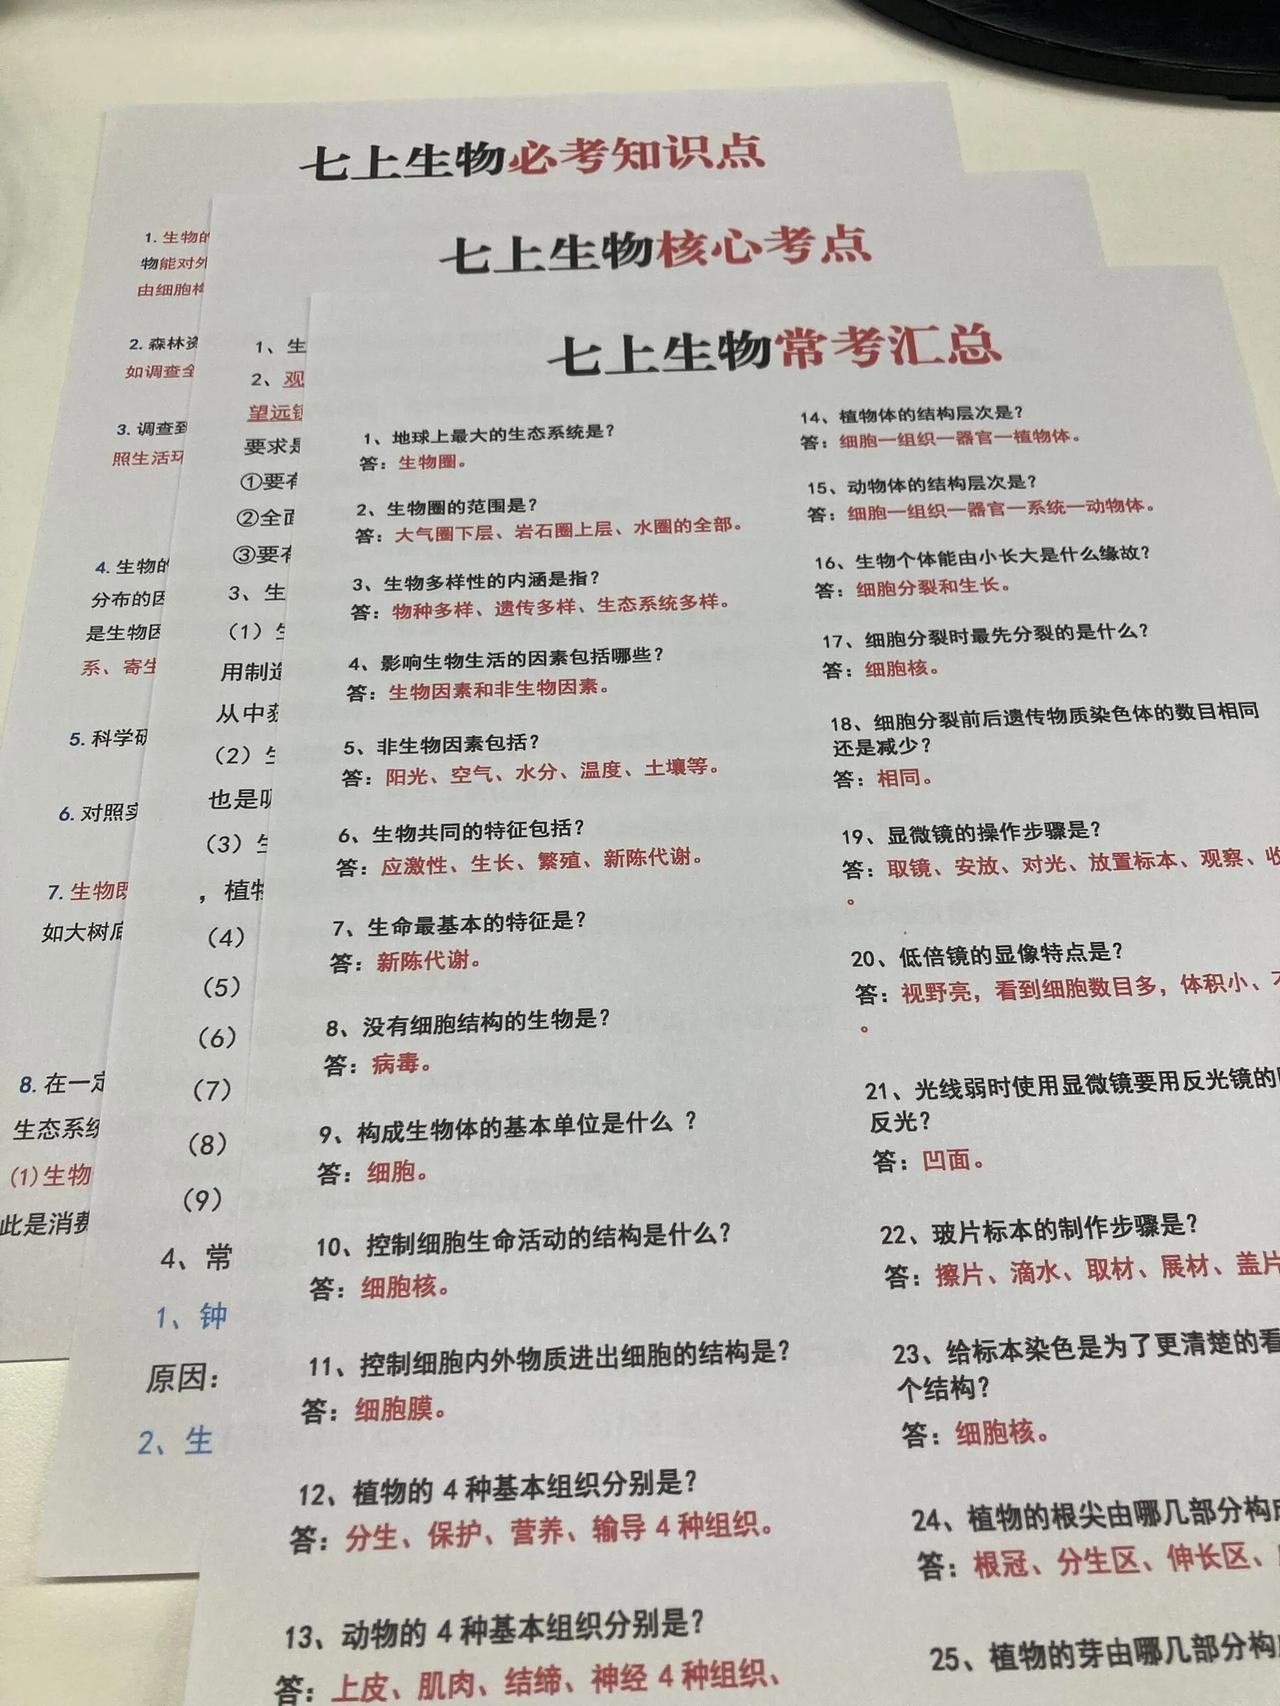 七上生物必考知识点
1. 生物的
物能对外
由细胞构
2. 森林资
如调查全
3. 调查到
照生活环
4. 生物的
分布的因
是生物因
系、寄生
5. 科学研
6. 对照实
7. 生物既
如大树底
8. 在一定
生态系统
(1)生物
此是消费
七上生物核心考点
1、生
2、观
望远镜
要求是
①要有
②全面
③要有
3、生
（1）生
用制造
从中获
（2）生
也是吸
（3）生
，植物
（4）
（5）
（6）
（7）
（8）
（9）
4、常
1、钟
原因：
2、生
七上生物常考汇总
1、地球上最大的生态系统是？
答：生物圈。
2、生物圈的范围是？
答：大气圈下层、岩石圈上层、水圈的全部。
3、生物多样性的内涵是指？
答：物种多样、遗传多样、生态系统多样。
4、影响生物生活的因素包括哪些？
答：生物因素和非生物因素。
5、非生物因素包括？
答：阳光、空气、水分、温度、土壤等。
6、生物共同的特征包括？
答：应激性、生长、繁殖、新陈代谢。
7、生命最基本的特征是？
答：新陈代谢。
8、没有细胞结构的生物是？
答：病毒。
9、构成生物体的基本单位是什么 ？
答：细胞。
10、控制细胞生命活动的结构是什么？
答：细胞核。
11、控制细胞内外物质进出细胞的结构是？
答：细胞膜。
12、植物的 4 种基本组织分别是？
答：分生、保护、营养、输导 4 种组织。
13、动物的 4 种基本组织分别是？
答：上皮、肌肉、结缔、神经 4 种组织、
14、植物体的结构层次是？
答：细胞一组织一器官一植物体。
15、动物体的结构层次是？
答：细胞一组织一器官一系统一动物体。
16、生物个体能由小长大是什么缘故？
答：细胞分裂和生长。
17、细胞分裂时最先分裂的是什么？
答：细胞核。
18、细胞分裂前后遗传物质染色体的数目相同
还是减少？
答：相同。
19、显微镜的操作步骤是？
答：取镜、安放、对光、放置标本、观察、收
。
20、低倍镜的显像特点是？
答：视野亮，看到细胞数目多，体积小、
。
21、光线弱时使用显微镜要用反光镜的
反光？
答：凹面。
22、玻片标本的制作步骤是？
答：擦片、滴水、取材、展材、盖片
23、给标本染色是为了更清楚的看
个结构？
答：细胞核。
24、植物的根尖由哪几部分构成
答：根冠、分生区、伸长区、
25、植物的芽由哪几部分构